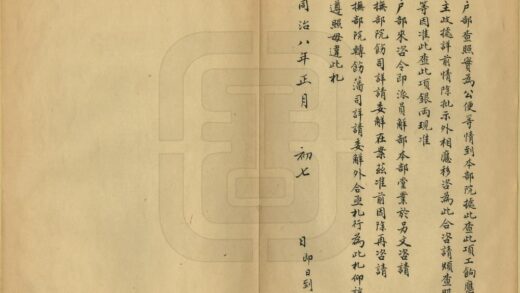 戶部查照實為公便等情到本部院據此查此項工餉應
主政據詳前情除批示外相應移咨為此合咨請煩查照
等因准此查此項銀兩現准
戶部來咨令即派員解部本部堂業於另文咨請
撫部院飭司詳請委解在案茲准前因除再咨請
撫部院轉飭藩司詳請委解外合亟札行為此札仰該
遵照毋違此札
同治八年正月 初七 日即日到